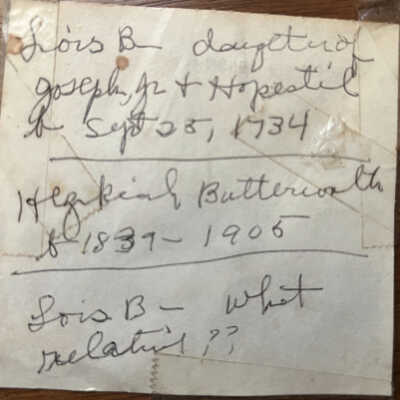 Lois B - daughter of
Joseph, Jr + Hopestil
b Sept 25, 1734
Hezekiah Butterworth
b-1839-1905
Lois B - What
relative??